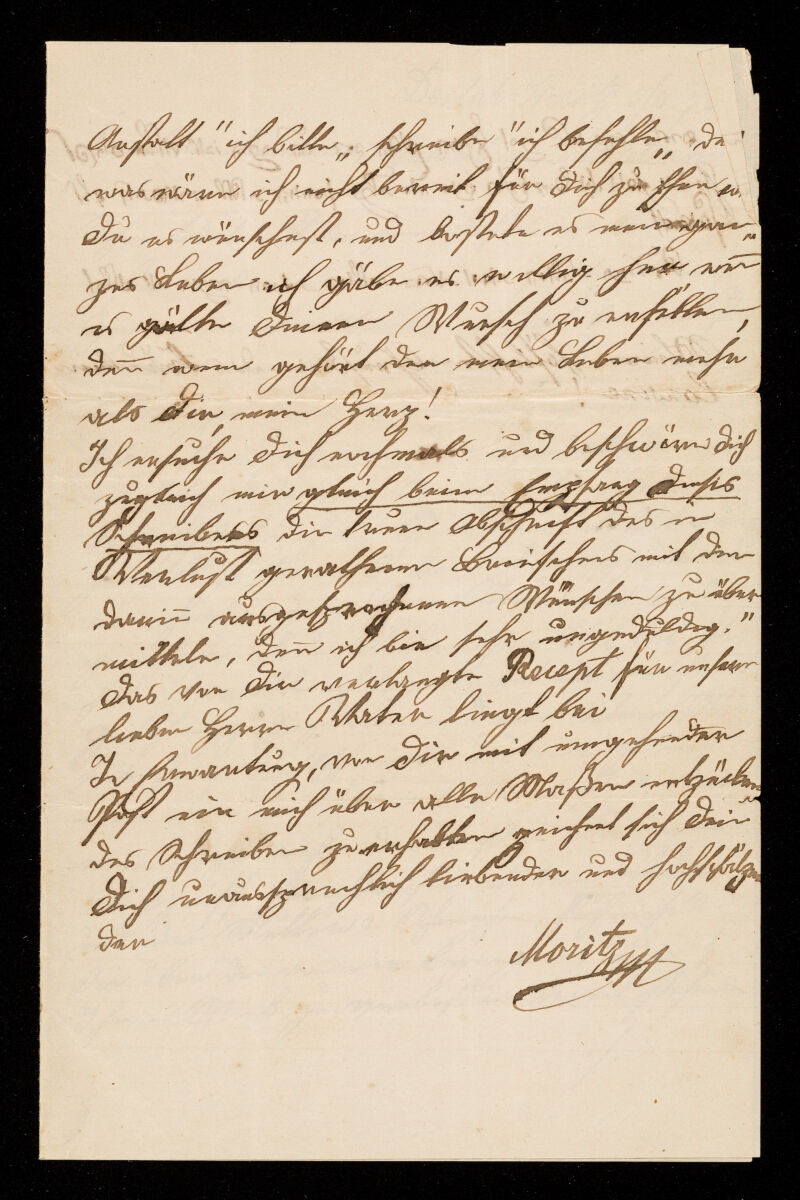 Anstatt "ich bitte" schreibe "ich befehle", de
was wäre ich nicht bereit für Dich zu thun w
Du es wünschest, und kostete es mein gan-
zes Leben ich gäbe es willig her, wen̄
es gälte Deinen Wunsch zu erfüllen,
den̄ wem gehört den mein Leben mehr
als Dir, mein Herz!
Ich ersuche Dich nochmals und beschwöre Dich
zugleich mir gleich beim Empfang dieses
Schreibens die treue Abschrift des in
Verlust gerathenen Briefchens mit den
darin̄ ausgesprochenen Wünschen zu über
mitteln, den̄ ich bin sehr ungeduldig."
Das von Dir verlangte Recept für unsern
lieben Herrn Vater liegt bei
In Erwartung, von Dir mit umgehender
Post ein mich über alle Maßen entzücken
des Schreiben zu erhalten zeichnet sich Dein
Dich unaussprechlich liebender und hochschätzen
der
Moritz